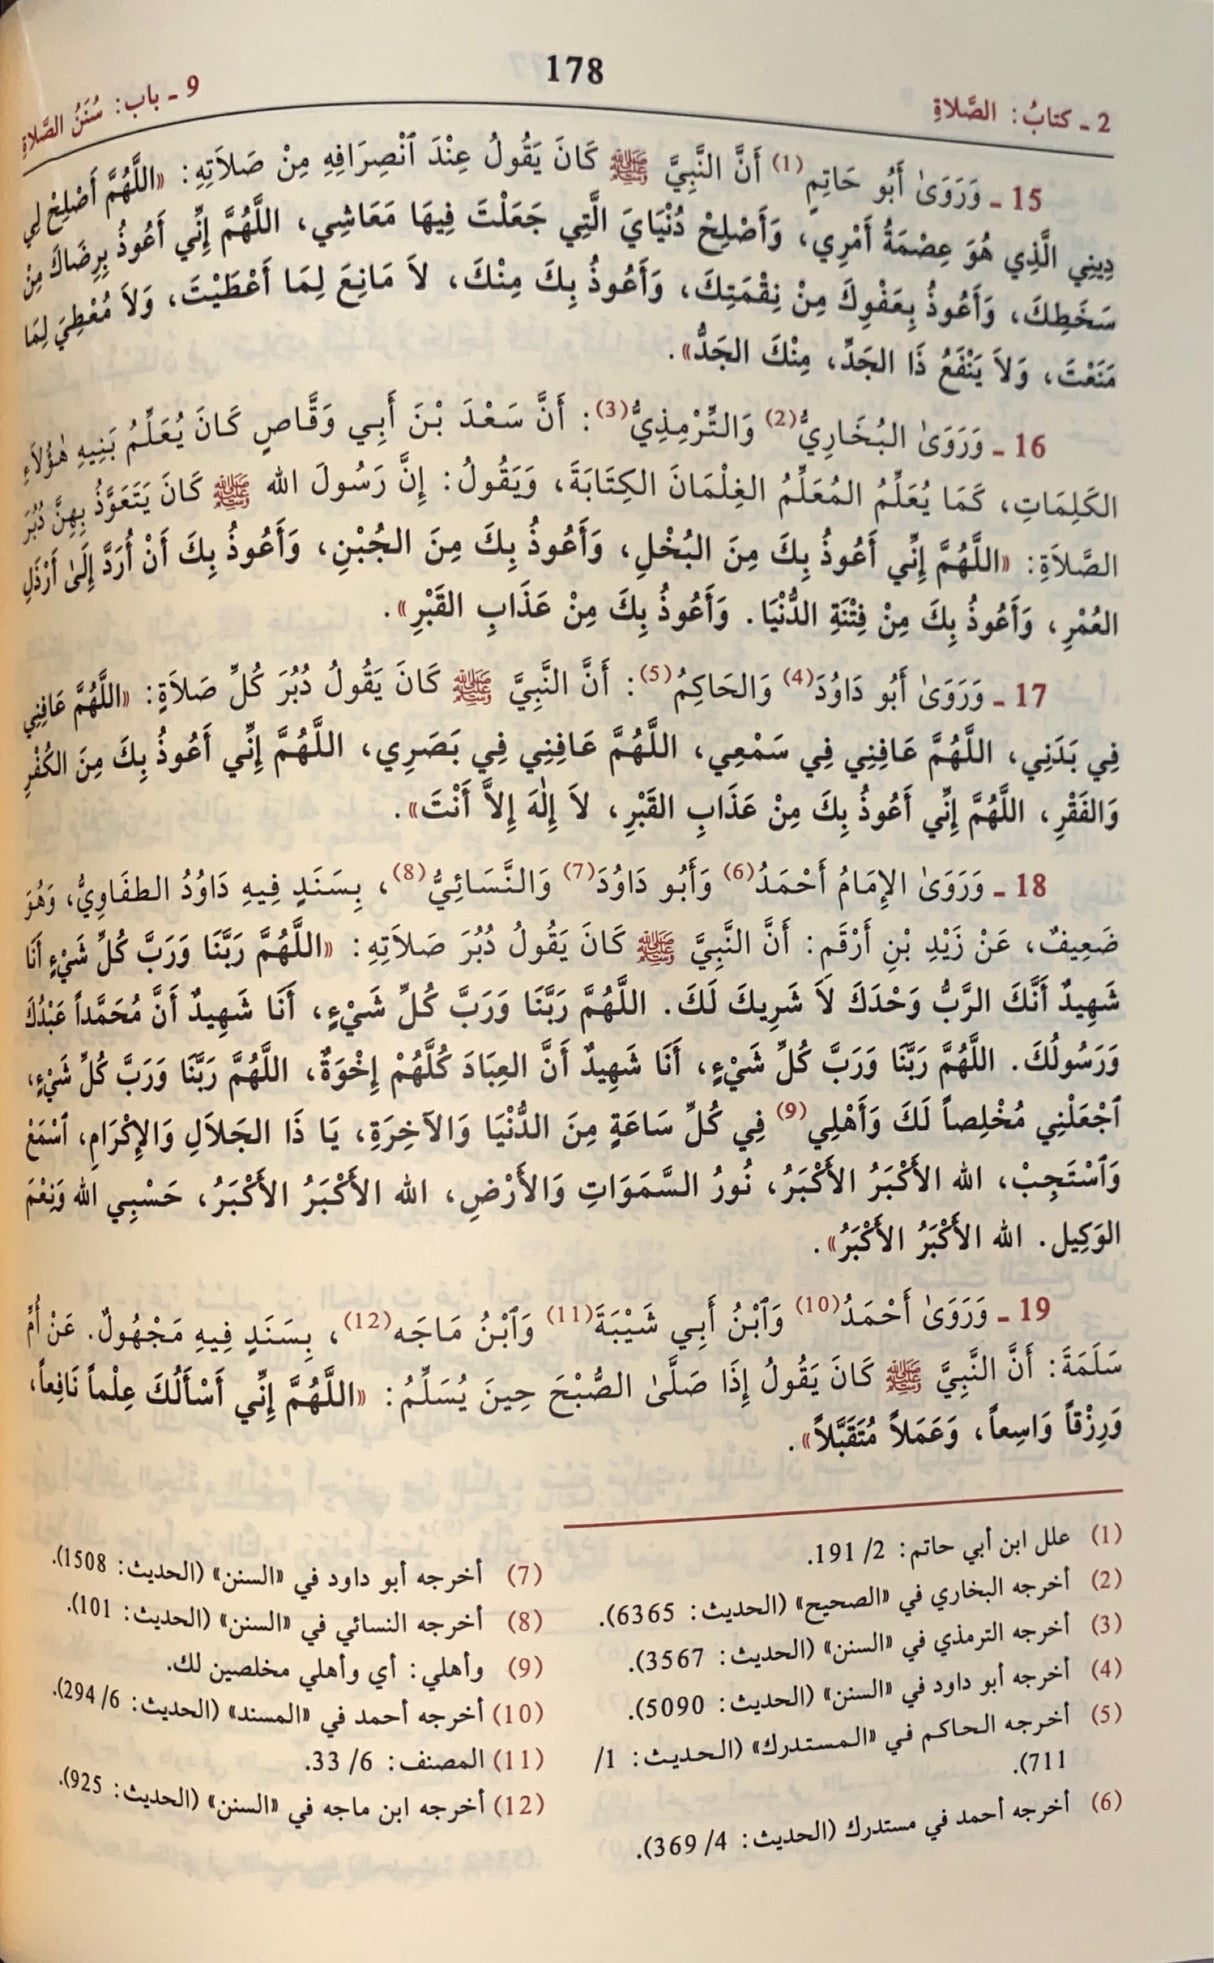 2 ـ كتابُ: الصَّلاةِ
178
9 ـ باب: سُنَنُ الصَّلاةِ
15 ـ وَرَوَىٰ أَبُو حَاتِمٍ(1) أَنَّ النَّبِيَّ ﷺ كَانَ يَقُولُ عِنْدَ ٱنْصِرَافِهِ مِنْ صَلاَتِهِ: «اللَّهُمَّ أَصْلِحْ لِي
دِينِي الَّذِي هُوَ عِصْمَةُ أَمْرِي، وَأَصْلِحْ دُنْيَايَ الَّتِي جَعَلْتَ فِيهَا مَعَاشِي، اللَّهُمَّ إِنِّي أَعُوذُ بِرِضَاكَ مِنْ
سَخَطِكَ، وَأَعُوذُ بِعَفْوِكَ مِنْ نِقْمَتِكَ، وَأَعُوذُ بِكَ مِنْكَ، لاَ مَانِعَ لِمَا أَعْطَيْتَ، وَلاَ مُعْطِيَ لِمَا
مَنَعْتَ، وَلاَ يَنْفَعُ ذَا الجَدِّ، مِنْكَ الجَدُّ».
16 ـ وَرَوَىٰ البُخَارِيُّ(2) وَالتِّرْمِذِيُّ(3): أَنَّ سَعْدَ بْنَ أَبِي وَقَّاصٍ كَانَ يُعَلِّمُ بَنِيهِ هٰؤُلاَءِ
الكَلِمَاتِ، كَمَا يُعَلِّمُ المُعَلِّمُ الغِلْمَانَ الكِتَابَةَ، وَيَقُولُ: إِنَّ رَسُولَ الله ﷺ كَانَ يَتَعَوَّذُ بِهِنَّ دُبُرَ
الصَّلاَةِ: «اللَّهُمَّ إِنِّي أَعُوذُ بِكَ مِنَ البُخْلِ، وَأَعُوذُ بِكَ مِنَ الجُبْنِ، وَأَعُوذُ بِكَ أَنْ أُرَدَّ إِلَىٰ أَرْذَلِ
العُمْرِ، وَأَعُوذُ بِكَ مِنْ فِتْنَةِ الدُّنْيَا. وَأَعُوذُ بِكَ مِنْ عَذَابِ القَبْرِ».
17 ـ وَرَوَىٰ أَبُو دَاوُدَ(4) وَالحَاكِمُ(5): أَنَّ النَّبِيَّ ﷺ كَانَ يَقُولُ دُبُرَ كُلِّ صَلاَةٍ: «اللَّهُمَّ عَافِنِي
فِي بَدَنِي، اللَّهُمَّ عَافِنِي فِي سَمْعِي، اللَّهُمَّ عَافِنِي فِي بَصَرِي، اللَّهُمَّ إِنِّي أَعُوذُ بِكَ مِنَ الكُفْرِ
وَالفَقْرِ، اللَّهُمَّ إِنِّي أَعُوذُ بِكَ مِنْ عَذَابِ القَبْرِ، لاَ إِلٰهَ إِلاَّ أَنْتَ».
18 ـ وَرَوَىٰ الإِمَامُ أَحْمَدُ(6) وَأَبُو دَاوُدَ(7) وَالنَّسَائِيُّ(8)، بِسَنَدٍ فِيهِ دَاوُدُ الطفَاوِيُّ، وَهُوَ
ضَعِيفٌ، عَنْ زَيْدِ بْنِ أَرْقَم: أَنَّ النَّبِيَّ ﷺ كَانَ يَقُولُ دُبُرَ صَلاَتِهِ: «اللَّهُمَّ رَبَّنَا وَرَبَّ كُلِّ شَيْءٍ أَنَا
شَهِيدٌ أَنَّكَ الرَّبُّ وَحْدَكَ لاَ شَرِيكَ لَكَ. اللَّهُمَّ رَبَّنَا وَرَبَّ كُلِّ شَيْءٍ، أَنَا شَهِيدٌ أَنَّ مُحَمَّداً عَبْدُكَ
وَرَسُولُكَ. اللَّهُمَّ رَبَّنَا وَرَبَّ كُلِّ شَيْءٍ، أَنَا شَهِيدٌ أَنَّ العِبَادَ كُلَّهُمْ إِخْوَةٌ، اللَّهُمَّ رَبَّنَا وَرَبَّ كُلِّ شَيْءٍ،
ٱجْعَلْنِي مُخْلِصاً لَكَ وَأَهْلِي(9) فِي كُلِّ سَاعَةٍ مِنَ الدُّنْيَا وَالآخِرَةِ، يَا ذَا الجَلاَلِ وَالإِكْرَامِ، ٱسْمَعْ
وَٱسْتَجِبْ، الله الأَكْبَرُ الأَكْبَرُ، نُورُ السَّمَوَاتِ وَالأَرْضِ، الله الأَكْبَرُ الأَكْبَرُ، حَسْبِي الله وَنِعْمَ
الوَكِيل. الله الأَكْبَرُ الأَكْبَرُ».
19 ـ وَرَوَىٰ أَحْمَدُ(10) وَٱبْنُ أَبِي شَيْبَةَ(11) وَٱبْنُ مَاجَه(12)، بِسَنَدٍ فِيهِ مَجْهُولٌ. عَنْ أُمِّ
سَلَمَةَ: أَنَّ النَّبِيَّ ﷺ كَانَ يَقُولُ إِذَا صَلَّىٰ الصُّبْحَ حِينَ يُسَلِّمُ: «اللَّهُمَّ إِنِّي أَسْأَلُكَ عِلْماً نَافِعاً،
وَرِزْقاً وَاسِعاً، وَعَمَلاً مُتَقَبَّلاً».
(1) علل ابن أبي حاتم: 2/ 191.
(2) أخرجه البخاري في «الصحيح» (الحديث: 6365).
(3) أخرجه الترمذي في «السنن» (الحديث: 3567).
(4) أخرجه أبو داود في «السنن» (الحديث: 5090).
(5) أخرجه الحاكم في «المستدرك» (الحديث: 1/
711).
(6) أخرجه أحمد في مستدرك (الحديث: 4/ 369).
(7) أخرجه أبو داود في «السنن» (الحديث: 1508).
(8) أخرجه النسائي في «السنن» (الحديث: 101).
(9) وأهلي: أي وأهلي مخلصين لك.
(10) أخرجه أحمد في «المسند» (الحديث: 6/ 294).
(11) المصنف: 6/ 33.
(12) أخرجه ابن ماجه في «السنن» (الحديث: 925).